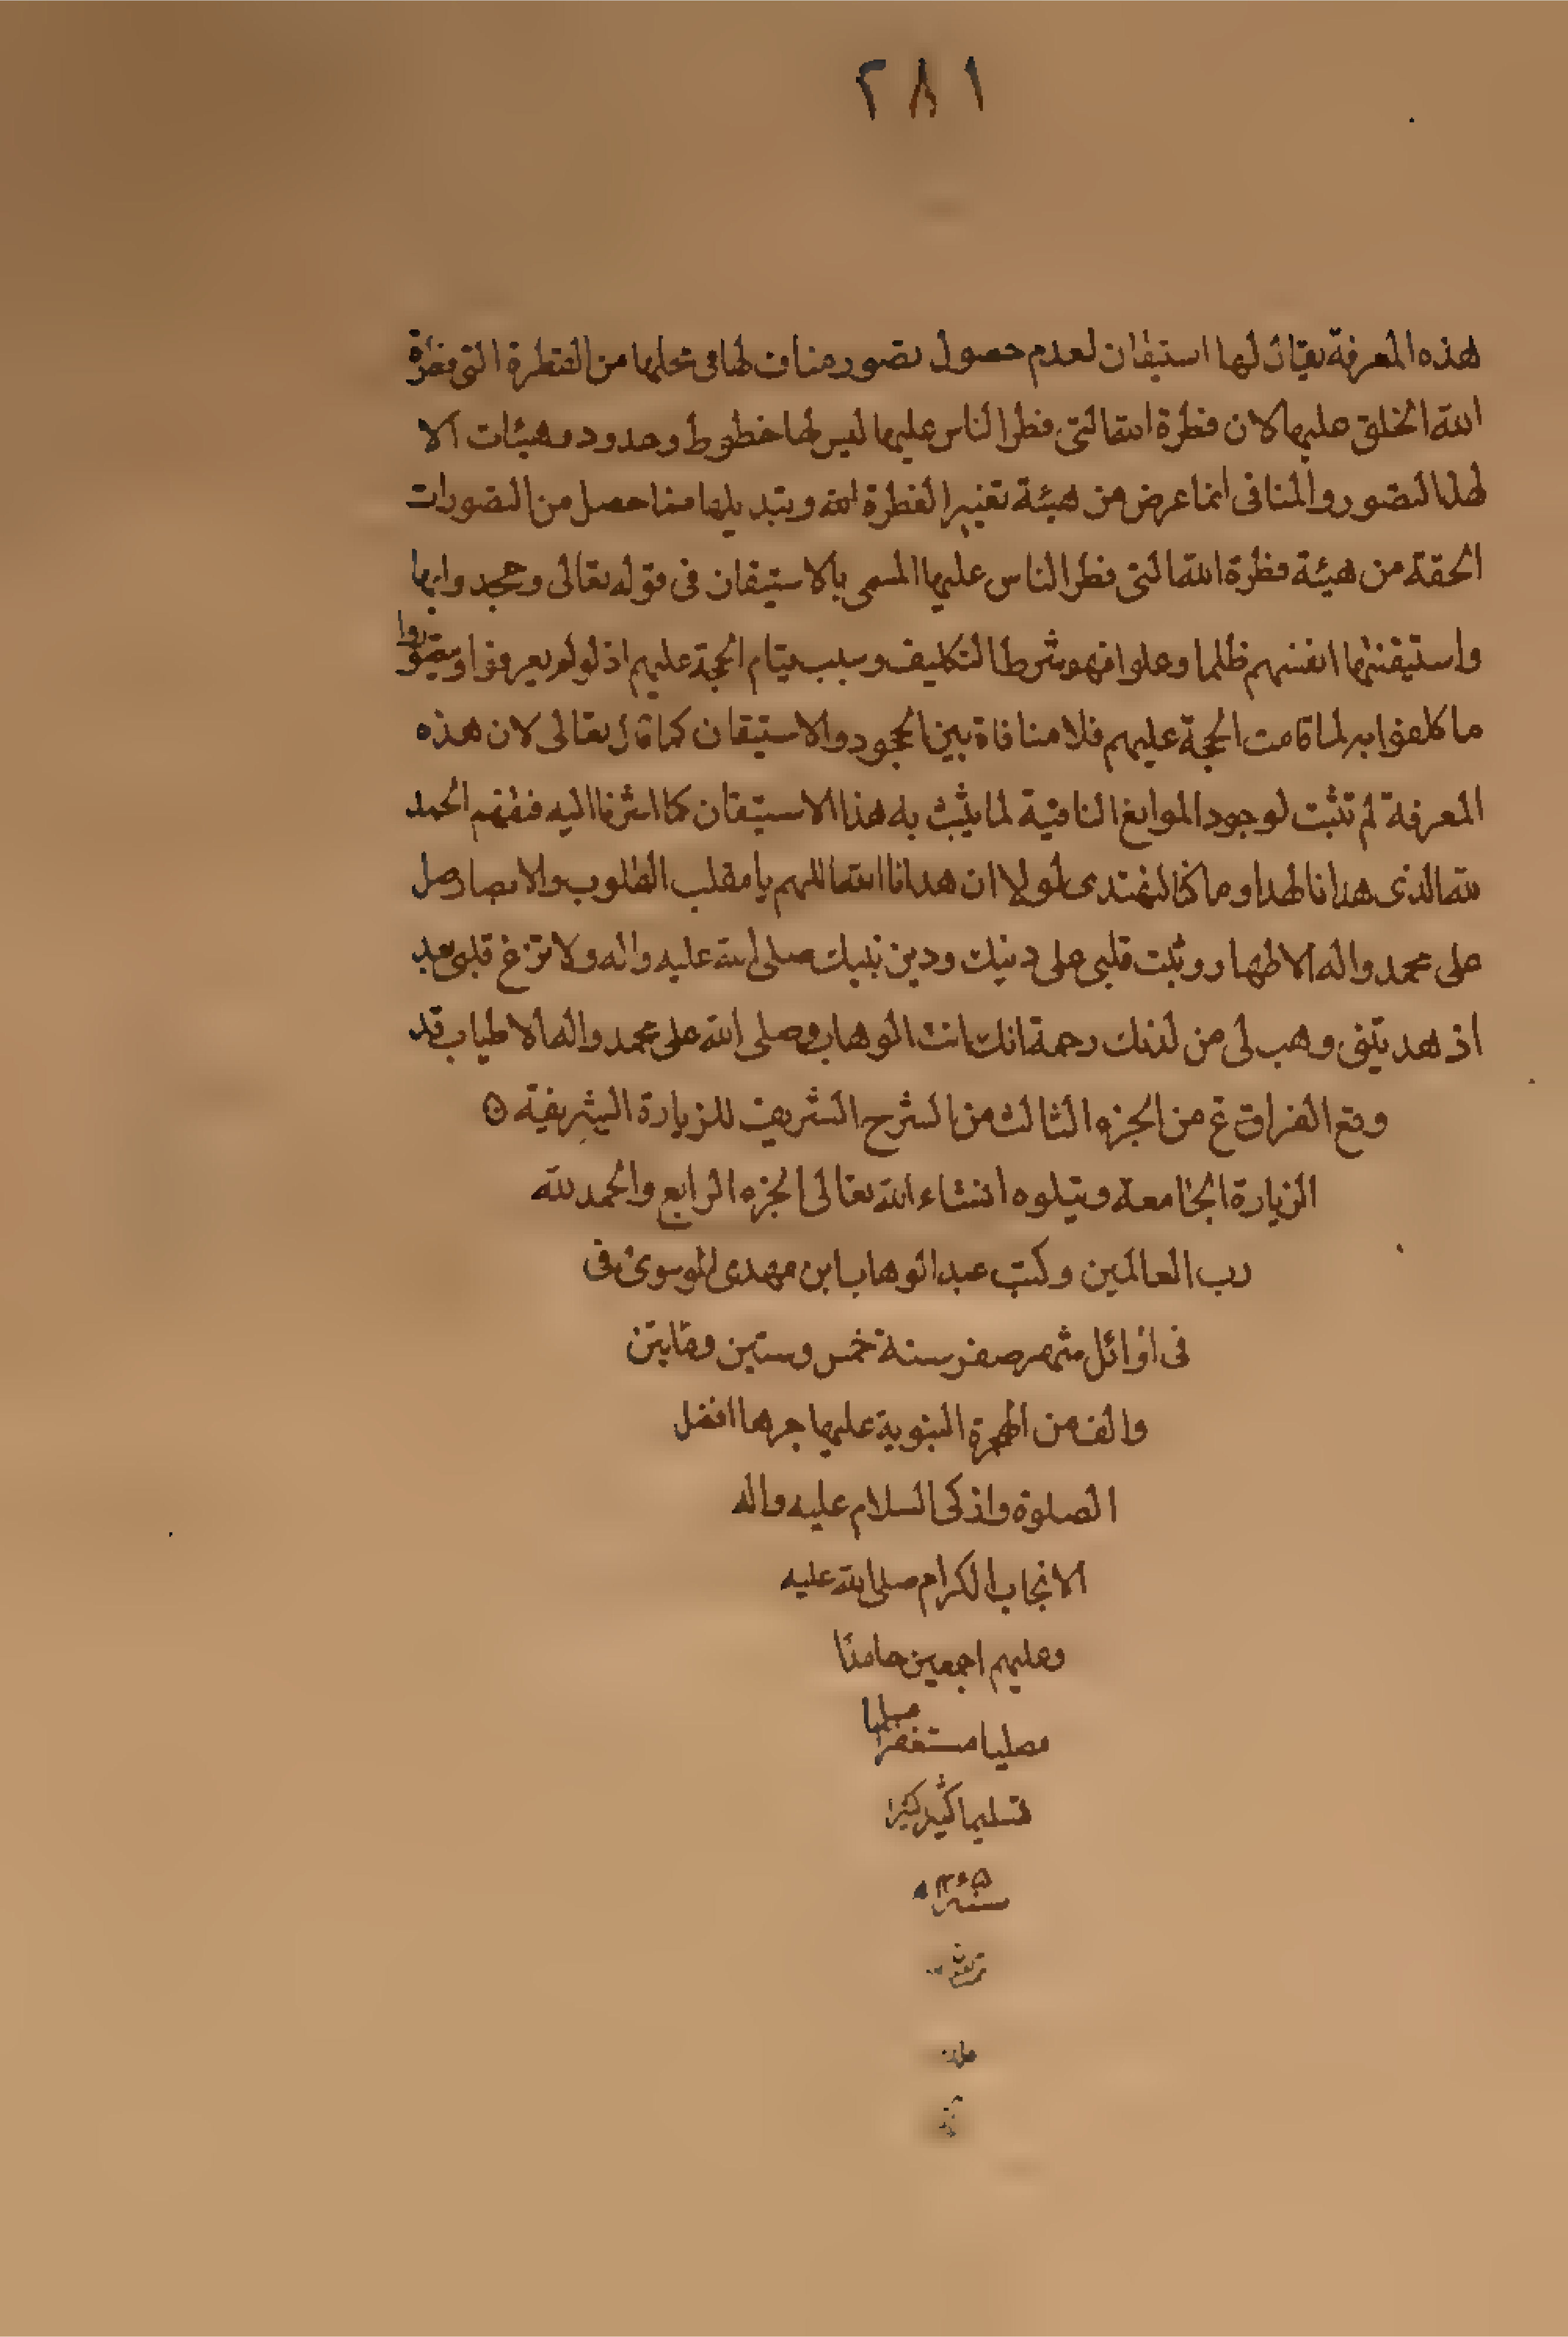 ٢٨١
هذه المعرفة يقال لها استيقان لعدم حصول تصور مناف لها فى محلها من الفطرة التى فطرة
الله الخلق عليها لان فطرة الله التى فطر الناس عليها ليس لها خطوط وحدود وهيئات الا
لهذا التصور والمنافى انما عرض من هيئة تغيير الفطرة الله وتبديلها مما حصل من التصورات
الحقة من هيئة فطرة الله التى فطر الناس عليها المسمى بالاستيقان فى قوله تعالى وجحدوا بها
واستيقنتها انفسهم ظلما وعلوا فهو شرط التكليف وسبب قيام الحجة عليهم اذ لو لم يعرفوا ويتصوروا
ما كلفوا به لما قامت الحجة عليهم فلا منافاة بين الجحود والاستيقان كما قال تعالى لان هذه
المعرفة لم تثبت لوجود الموانع النافية لما يثبت به هذا الاستيقان كما اشرنا اليه فتفهم الحمد
لله الذى هدانا لهذا وما كنا لنهتدى لولا ان هدانا الله اللهم يا مقلب القلوب والابصار صل
على محمد واله الاطهار وثبت قلبى على دينك ودين نبيك صلى الله عليه واله ولا تزغ قلبى بعد
اذ هديتنى وهب لى من لدنك رحمة انك انت الوهاب وصلى الله على محمد واله الاطياب قد
وقع الفراق غ من الجزء الثالث من الشرح الشريف للزيارة الشريفية
الزيارة الجامعة ويتلوه انشاء الله تعالى الجزء الرابع والحمد لله
رب العالمين وكتب عبد الوهاب ابن مهدى الموسوى فى
فى اوائل شهر صفر سنة خمس وستين ومايتن
والف من الهجرة النبوية على مهاجرها افضل
الصلوة واذكى السلام عليه واله
الانجاب الكرام صلى الله عليه
وعليهم اجمعين حامدا
مصليا مستغفرا مسلما
تسليما كثيرا كثيرا
سنة ١٢٦٥